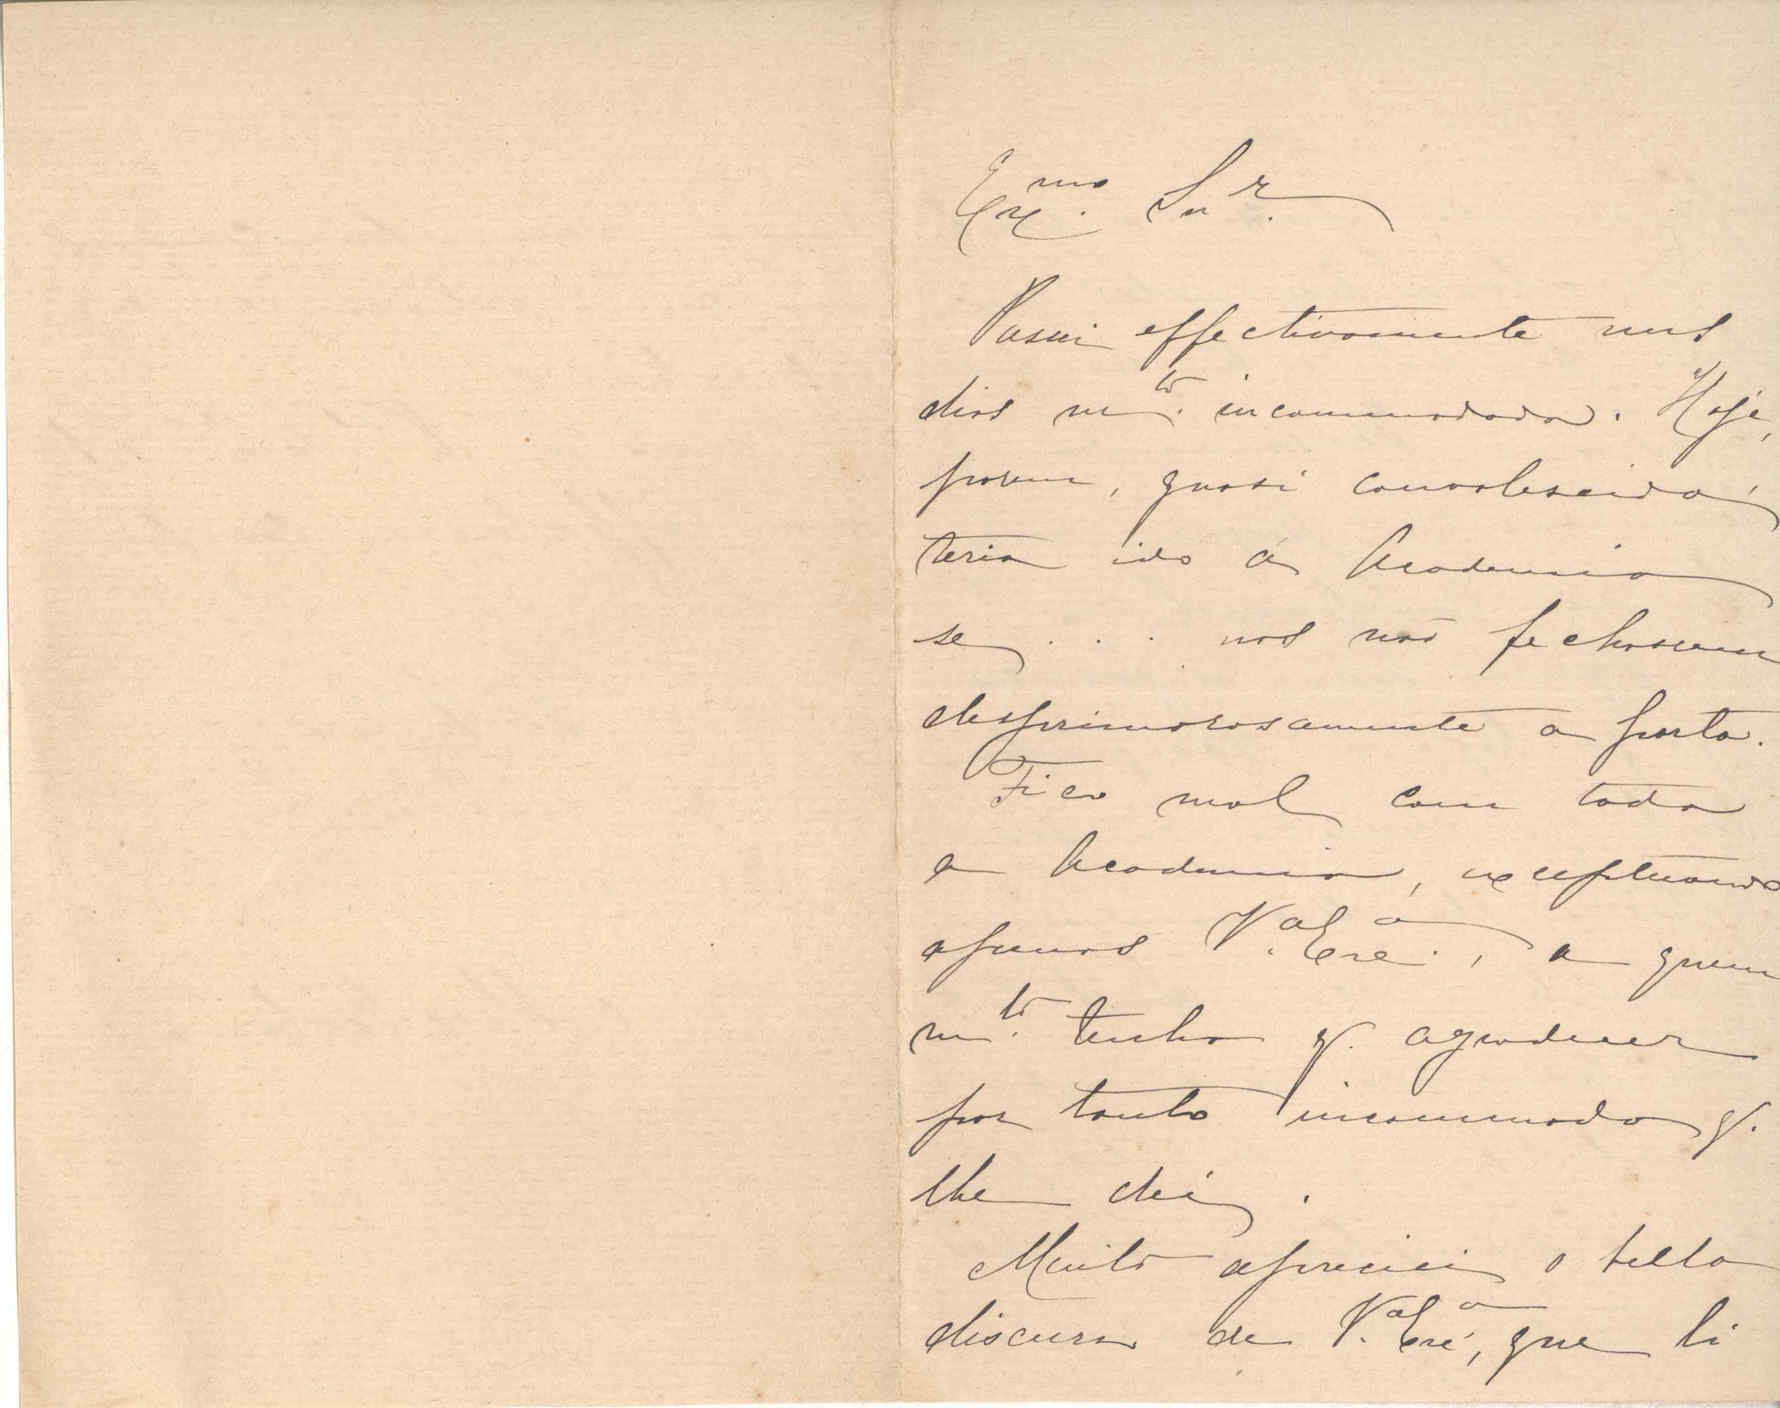 Exc.mo Snr.
Passei effectivamente uns
dias m.to incommodada. Hoje,
porem, quasi convalescida,
teria ido á Academia
se . . . nos não fechassem
desprimorosamente a porta.
Fico mal com toda
a Academia, exceptuando
apenas V.a Exc.a, a quem
m.to tenho q. agradecer
por tanto incommodo q.
lhe dei.
Muito apreciei o bello
discurso de V.a Exc.a, que li